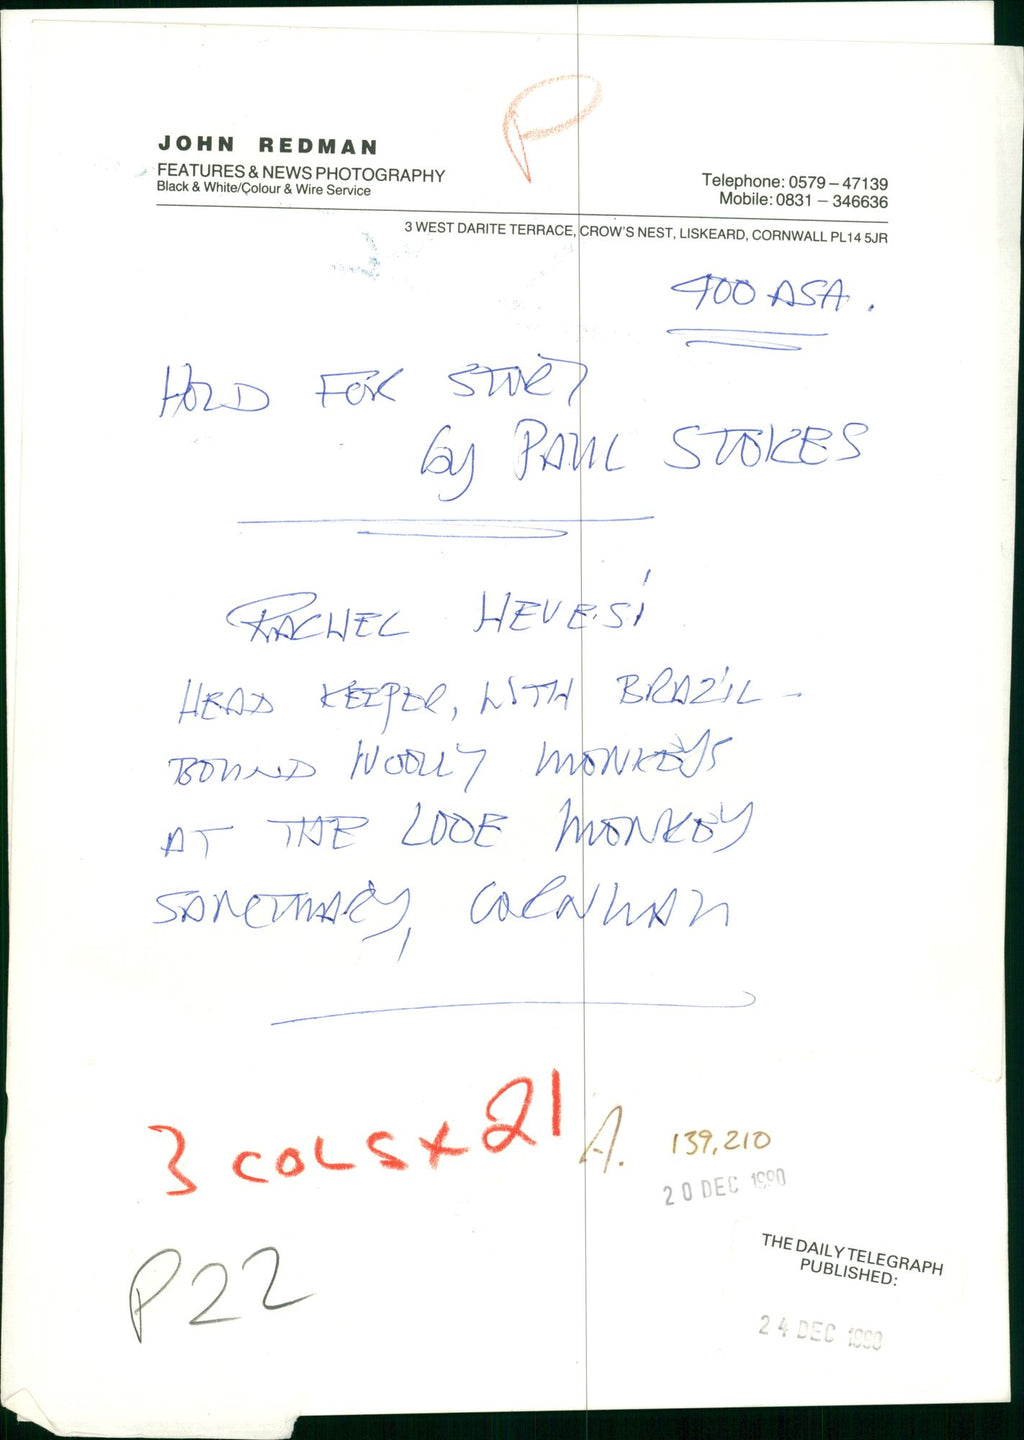 P
JOHN REDMAN
FEATURES & NEWS PHOTOGRAPHY
Black & White/Colour & Wire Service
Telephone: 0579 – 47139
Mobile: 0831 – 346636
3 WEST DARITE TERRACE, CROW'S NEST, LISKEARD, CORNWALL PL14 5JR
400 ASA.
HOLD FOR STORY
by PAUL STOKES
RACHEL HEVESI
HEAD KEEPER, WITH BRAZIL -
BOUND WOOLLY MONKEYS
AT THE LOOE MONKEY
SANCTUARY, CORNWALL
3 COLS x 21
A. 139,210
20 DEC 1990
P22
THE DAILY TELEGRAPH
PUBLISHED:
24 DEC 1990